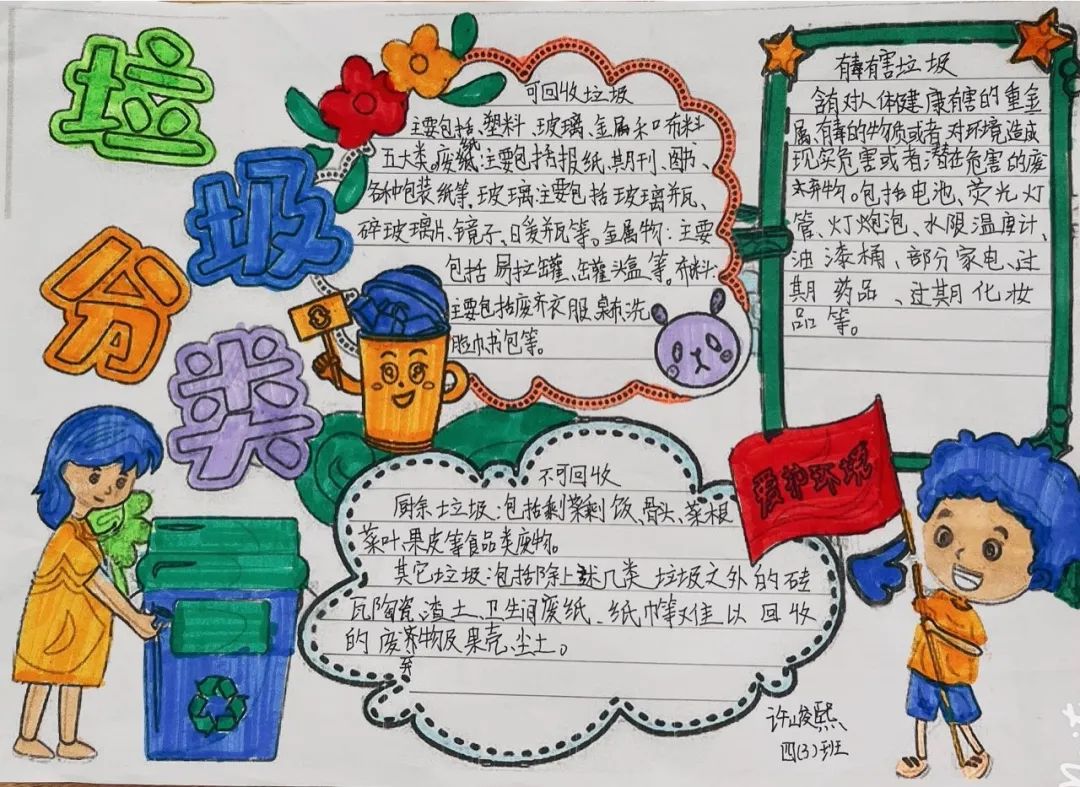 垃
圾
分
类
可回收垃圾
主要包括、塑料、玻璃、金属和布料
五大类。废纸:主要包括报纸、期刊、图书、
各种包装纸等,玻璃:主要包括玻璃瓶、
碎玻璃片、镜子、日暖瓶等。金属物:主要
包括易拉罐、罐头盒等。布料:
主要包括废弃衣服、桌布、洗
脸巾书包等。
有毒有害垃圾
含有对人体健康有害的重金
属、有毒的物质或者对环境造成
现实危害或者潜在危害的废
弃物。包括电池、荧光灯
管、灯炮泡、水限温度计、
油漆桶、部分家电、过
期药品、过期化妆
品等。
爱护环境
不可回收
厨余垃圾:包括剩菜剩饭、骨头、菜根
菜叶、果皮等食品类废物。
其它垃圾:包括除上述几类垃圾之外的砖
瓦陶瓷、渣土、卫生间废纸、纸巾等难以回收
的废弃物及果壳、尘土。
许峻熙
四(3)班